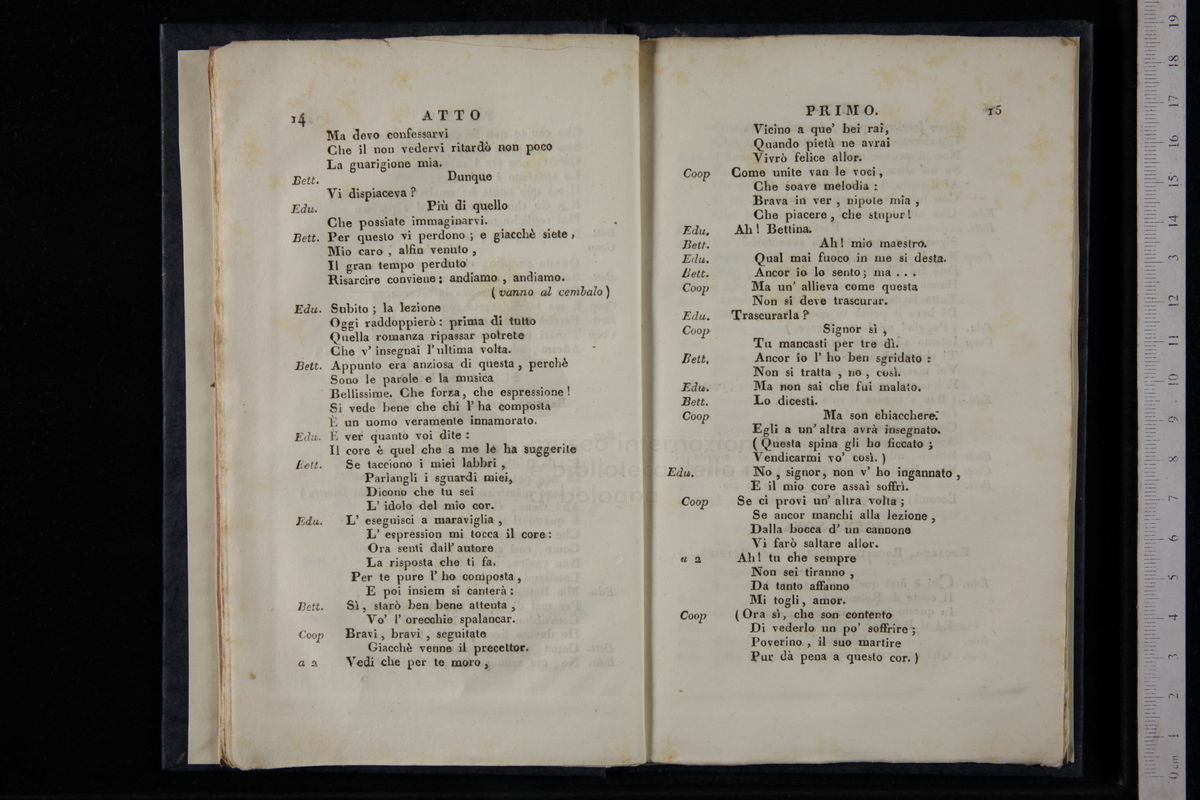 14 ATTO
Ma devo confessarvi
Che il non vedervi ritardò non poco
La guarigione mia.
Bett. Dunque
Vi dispiaceva ?
Edu. Più di quello
Che possiate immaginarvi.
Bett. Per questo vi perdono ; e giacchè siete ,
Mio caro , alfin venuto ,
Il gran tempo perduto
Risarcire conviene : andiamo , andiamo.
( vanno al cembalo )
Edu. Subito ; la lezione
Oggi raddoppierò : prima di tutto
Quella romanza ripassar potrete
Che v' insegnai l' ultima volta.
Bett. Appunto era anziosa di questa , perchè
Sono le parole e la musica
Bellissime. Che forza, che espressione !
Si vede bene che chi l' ha composta
È un uomo veramente innamorato.
Edu. È ver quanto voi dite :
Il core è quel che a me le ha suggerite
Bett. Se tacciono i miei labbri ,
Parlangli i sguardi miei,
Dicono che tu sei
L' idolo del mio cor.
Edu. L' eseguisci a maraviglia ,
L' espression mi tocca il core :
Ora senti dall' autore
La risposta che ti fa.
Per te pure l' ho composta ,
E poi insiem si canterà :
Bett. Sì , starò ben bene attenta ,
Vo' l' orecchie spalancar.
Coop Bravi , bravi , seguitate
Giacchè venne il precettor.
a 2 Vedi che per te moro ,
PRIMO. 15
Vicino a que' bei rai,
Quando pietà ne avrai
Vivrò felice allor.
Coop Come unite van le voci ,
Che soave melodia :
Brava in ver , nipote mia ,
Che piacere , che stupor !
Edu. Ah ! Bettina.
Bett. Ah ! mio maestro.
Edu. Qual mai fuoco in me si desta.
Bett. Ancor io lo sento ; ma . . .
Coop Ma un' allieva come questa
Non si deve trascurar.
Edu. Trascurarla ?
Coop Signor sì ,
Tu mancasti per tre dì.
Bett. Ancor io l' ho ben sgridato :
Non si tratta , no , così.
Edu. Ma non sai che fui malato.
Bett. Lo dicesti.
Coop Ma son chiacchere:
Egli a un' altra avrà insegnato.
( Questa spina gli ho ficcato ;
Vendicarmi vo' così. )
Edu. No , signor, non v' ho ingannato ,
E il mio core assai soffrì.
Coop Se ci provi un' altra volta ;
Se ancor manchi alla lezione ,
Dalla bocca d' un cannone
Vi farò saltare allor.
a 2 Ah ! tu che sempre
Non sei tiranno ,
Da tanto affanno
Mi togli , amor.
Coop ( Ora sì, che son contento
Di vederlo un po' soffrire ;
Poverino , il suo martire
Pur dà pena a questo cor. )